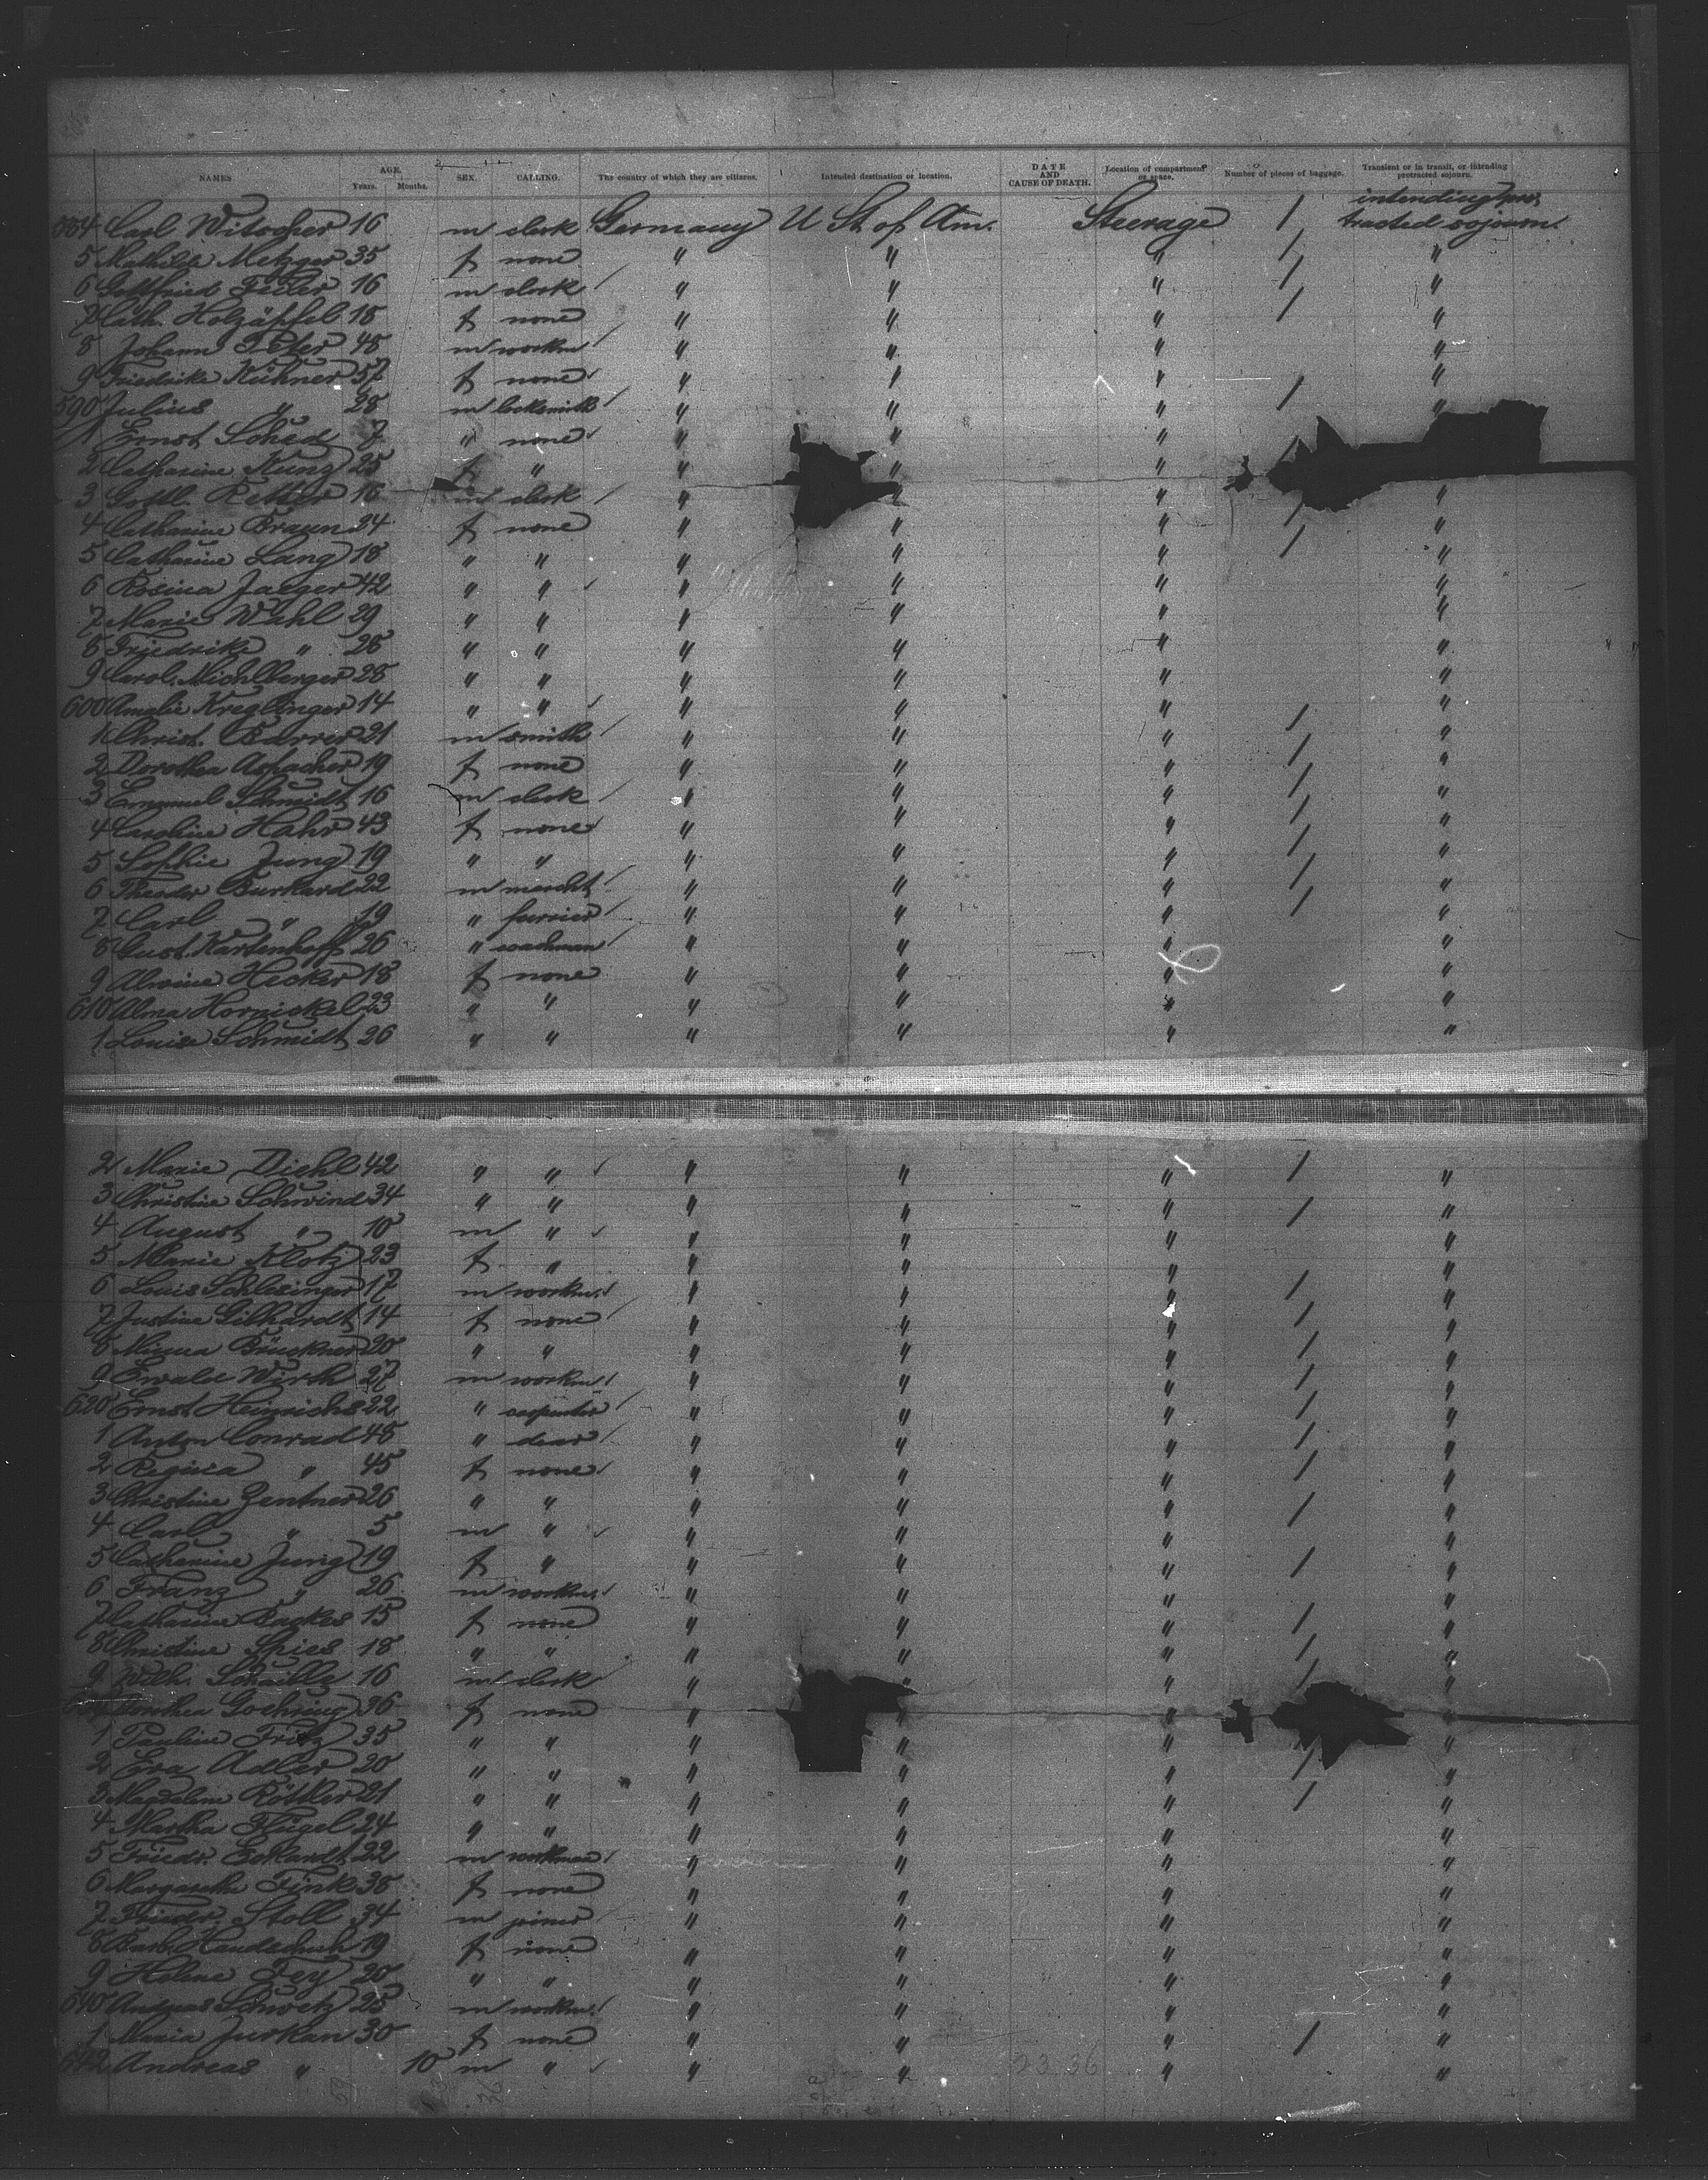 NAMES. AGE. Years. Months. SEX. CALLING. The country of which they are citizens. Intended destination or location. DATE AND CAUSE OF DEATH. Location of compartment or space. Number of pieces of baggage. Transient or in transit, or intending protracted sojourn.
584 Carl Witscher 16 m clerk Germany U St. of Am. Steerage / intending protracted sojourn.
5 Mathilde Metzger 35 f none " " " / "
6 Gottfried 16 m clerk " " " / "
7 Cath. Holzäpfel 18 f none " " " / "
8 Johann Peter 48 m workm " " " "
9 Friedrike Kühner 57 f none " " " "
590 Julius " 28 m locksmith " " " / "
1 Ernst Sched 7 " none " " "
2 Catharine Kunz 25 f " " " "
3 Gottl. Retter 16 m clerk " " " "
4 Catharine Braun 24 f none " " " / "
5 Catharine Lang 18 " " " " " / "
6 Rosina Jaeger 42 " " " " " "
7 Marie Wahl 29 " " " " " "
8 Friedrike " 28 " " " " " "
9 Carol. Michlberger 28 " " " " " "
600 Amalie Kreglinger 14 " " " " " "
1 Christ. 21 m smith " " " / "
2 Dorothea Aspacher 19 f none " " " / "
3 Emanuel Schmidt 16 m clerk " " " / "
4 Caroline Hahr 43 f none " " " / "
5 Sophie Jung 19 " " " " " / "
6 Theodor Burkard 22 m mercht " " " / "
7 Carl " 19 " furrier " " " / "
8 Gust. Kartenhoff 26 " " " " "
9 Alwine Hecker 18 f none " " " "
610 Alma Hornickel 23 " " " " " "
1 Louise Schmidt 26 " " " " " "
2 Marie Diehl 42 " " " " " / "
3 Christine Schwind 34 " " " " " / "
4 August " 10 m " " " " "
5 Marie Klotz 23 f " " " " "
6 Louis Schlesinger 17 m workm. " " " / "
7 Justine Gibhardt 14 f none " " " / "
8 Minna Brückner 20 " " " " " / "
9 Ewald Wirth 27 m workm " " " / "
620 Ernst Heinrichs 22 " carpenter " " " / "
1 Anton Conrad 48 " " " " / "
2 Regina " 45 f none " " " / "
3 Christine Zentner 26 " " " " " / "
4 Carl " 5 m " " " " "
5 Catharine Jung 19 f " " " " / "
6 Franz " 26 m workm. " " " "
7 Catharine Backes 15 f none " " " / "
8 Christine Spies 18 " " " " " / "
9 Wilh. Schaible 16 m clerk " " " / "
Dorothea Goehring 36 f none " " " "
1 Pauline Fritz 35 " " " " " "
2 Eva Adler 20 " " " " " / "
3 Magdalene Röttler 21 " " " " " / "
4 Martha Flügel 24 " " " " " "
5 Friedr. Eckardt 22 m workman " " " "
6 Margarethe Fink 38 f none " " " "
7 Friedr. Stoll 34 m joiner " " " "
8 Barb. Handschuh 19 f none " " " "
9 Helene Fey 20 " " " " " "
640 Andreas Schwetz 25 m workm. " " " "
1 Maria Jurkan 30 f none " " " / "
642 Andreas " 10 m " " " " "
23 36